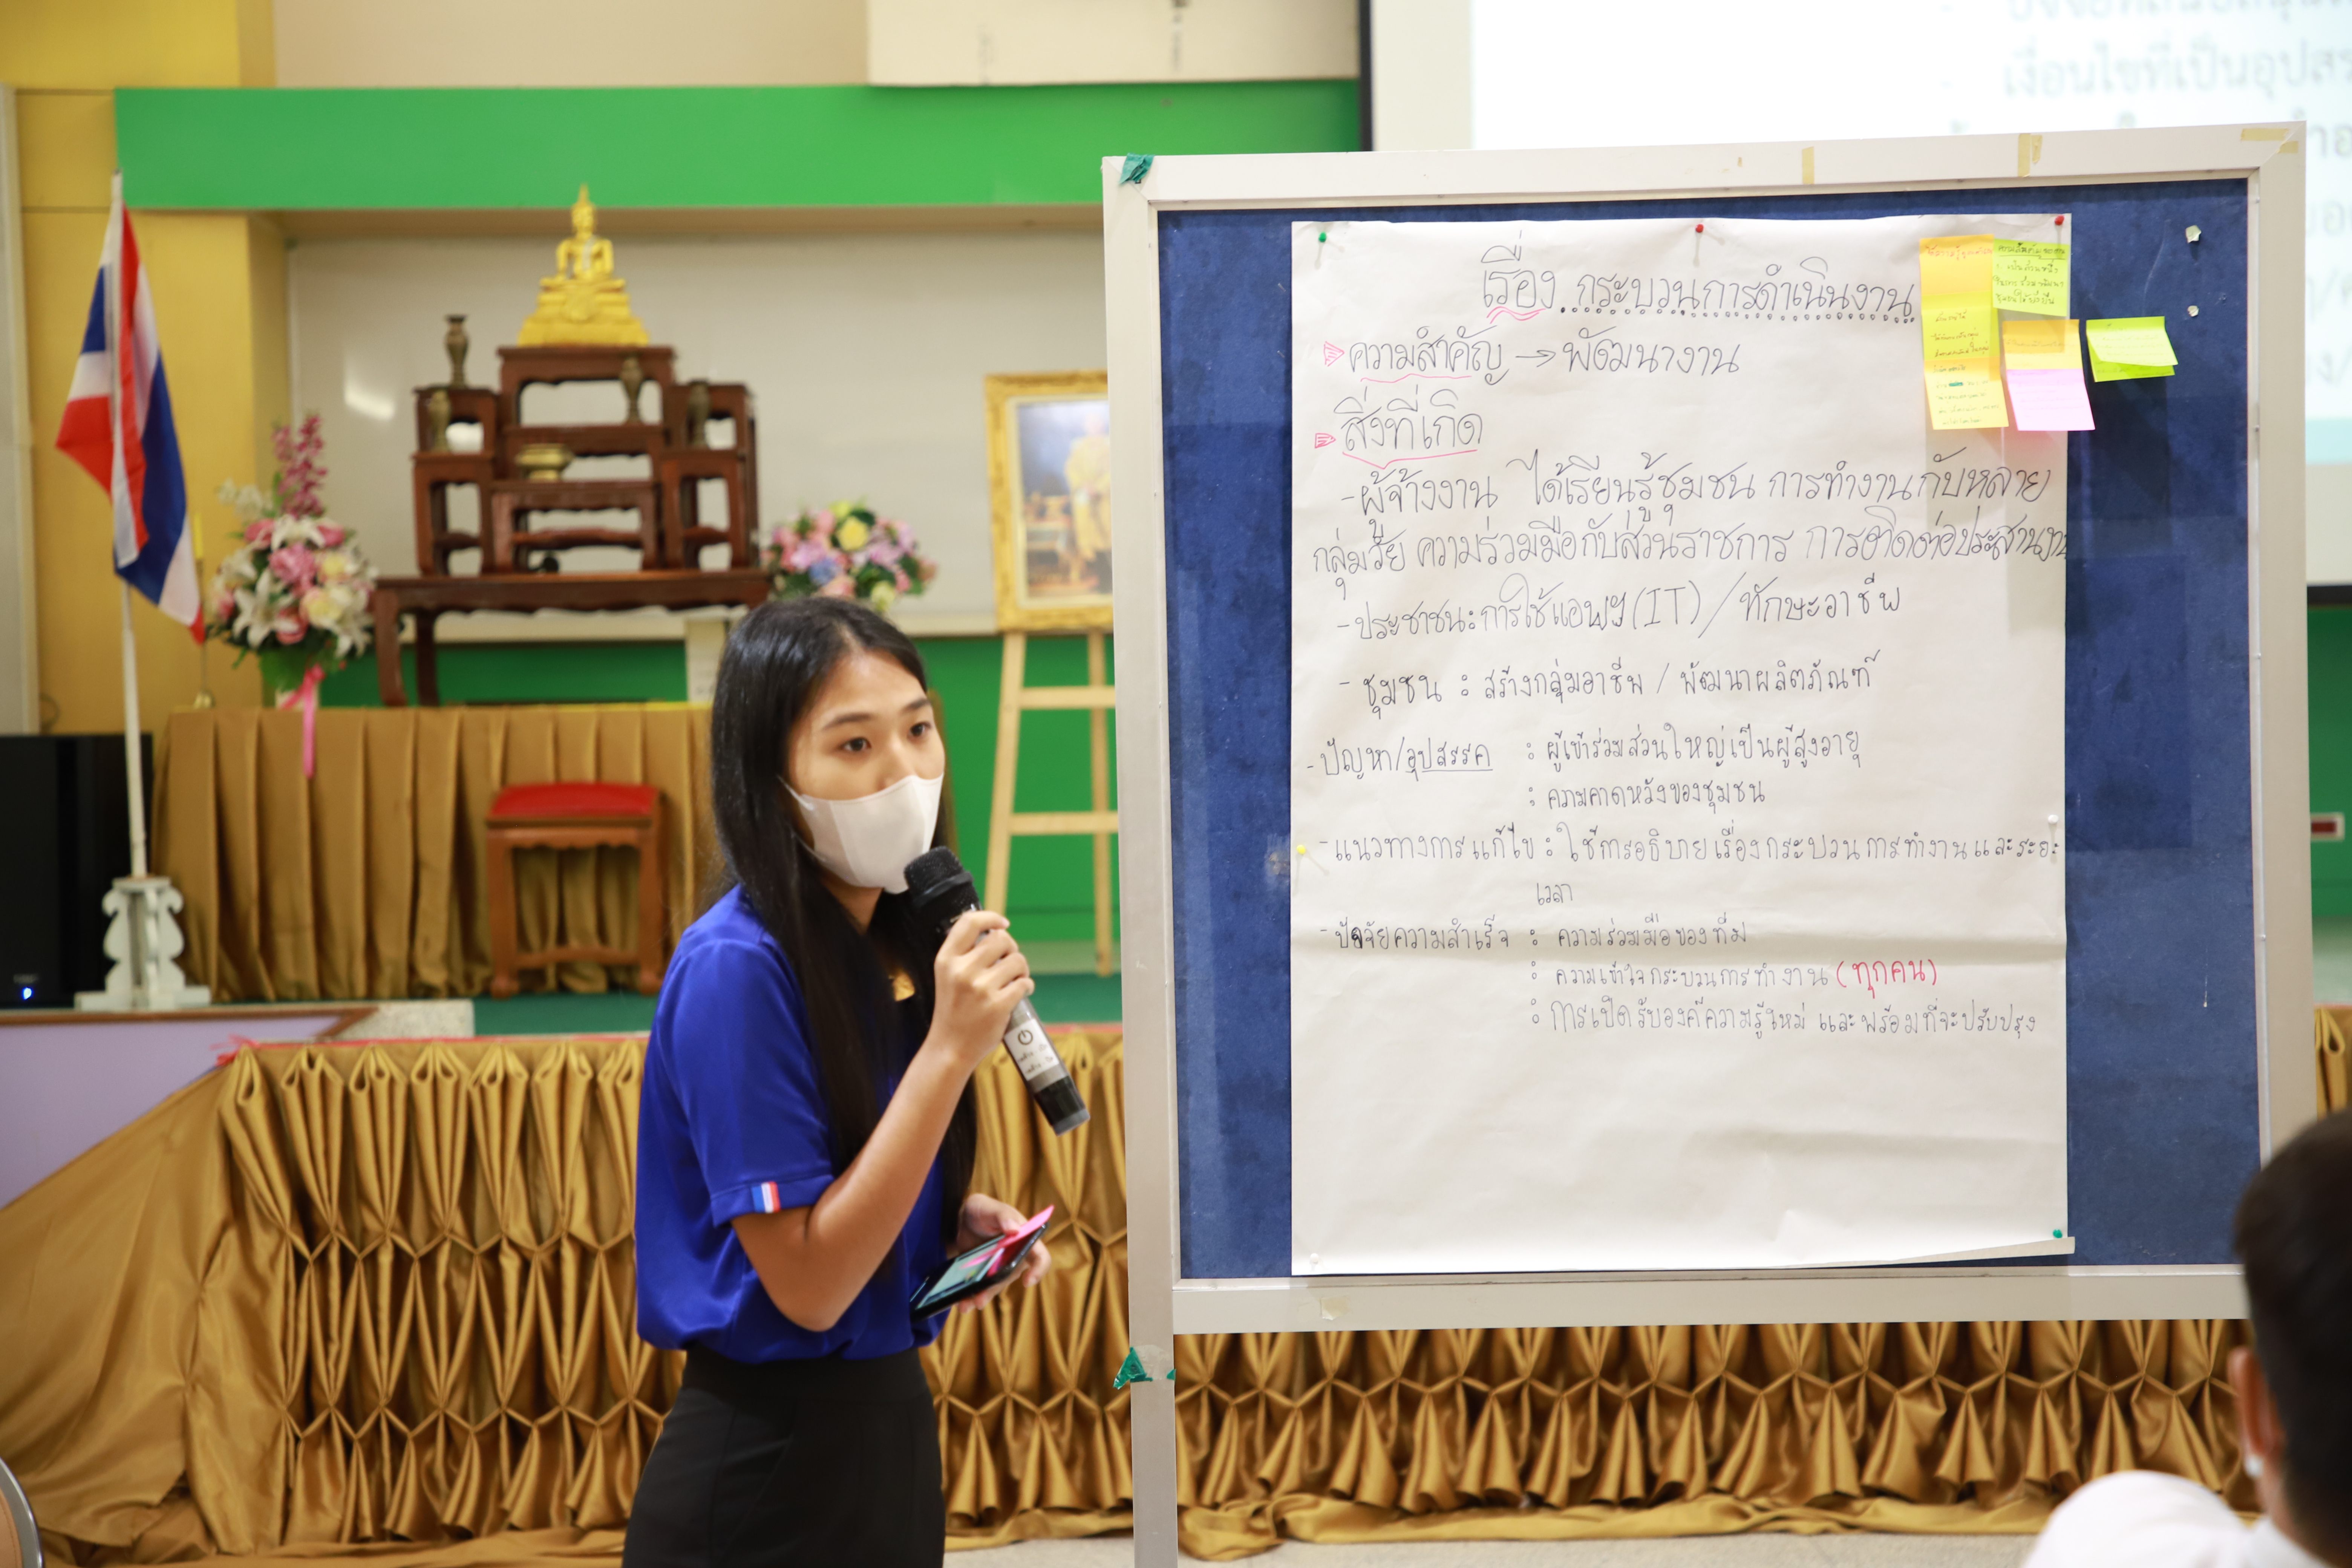 เงื่อนไขที่เป็นอุปสร
เรื่อง กระบวนการดำเนินงาน
ความสำคัญ → พัฒนางาน
สิ่งที่เกิด
- ผู้จ้างงาน ได้เรียนรู้ชุมชน การทำงานกับหลาย
กลุ่มวัย ความร่วมมือกับส่วนราชการ การติดต่อประสานงาน
- ประชาชน : การใช้แอพฯ (IT) / ทักษะอาชีพ
- ชุมชน : สร้างกลุ่มอาชีพ / พัฒนาผลิตภัณฑ์
- ปัญหา/อุปสรรค : ผู้เข้าร่วมส่วนใหญ่เป็นผู้สูงอายุ
: ความคาดหวังของชุมชน
- แนวทางการแก้ไข : ใช้การอธิบายเรื่องกระบวนการทำงานและระยะ
เวลา
- ปัจจัยความสำเร็จ : ความร่วมมือของทีม
: ความเข้าใจกระบวนการทำงาน (ทุกคน)
: การเปิดรับองค์ความรู้ใหม่ และพร้อมที่จะปรับปรุง